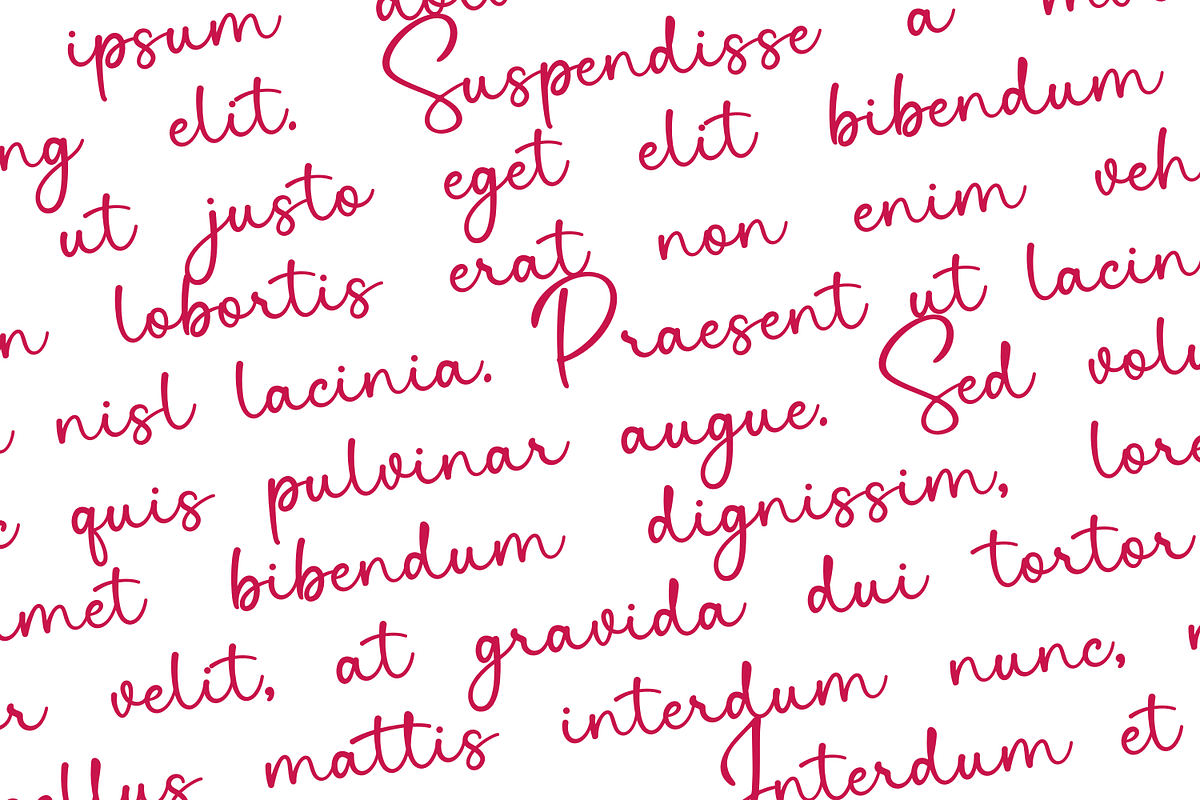 ipsum
ng elit. Suspendisse a
ut justo eget elit bibendum
n lobortis erat non enim veh
nisl lacinia. Praesent ut lacin
quis pulvinar augue. Sed volu
met bibendum dignissim, lore
r velit, at gravida dui tortor
ellus mattis interdum nunc,
Interdum et